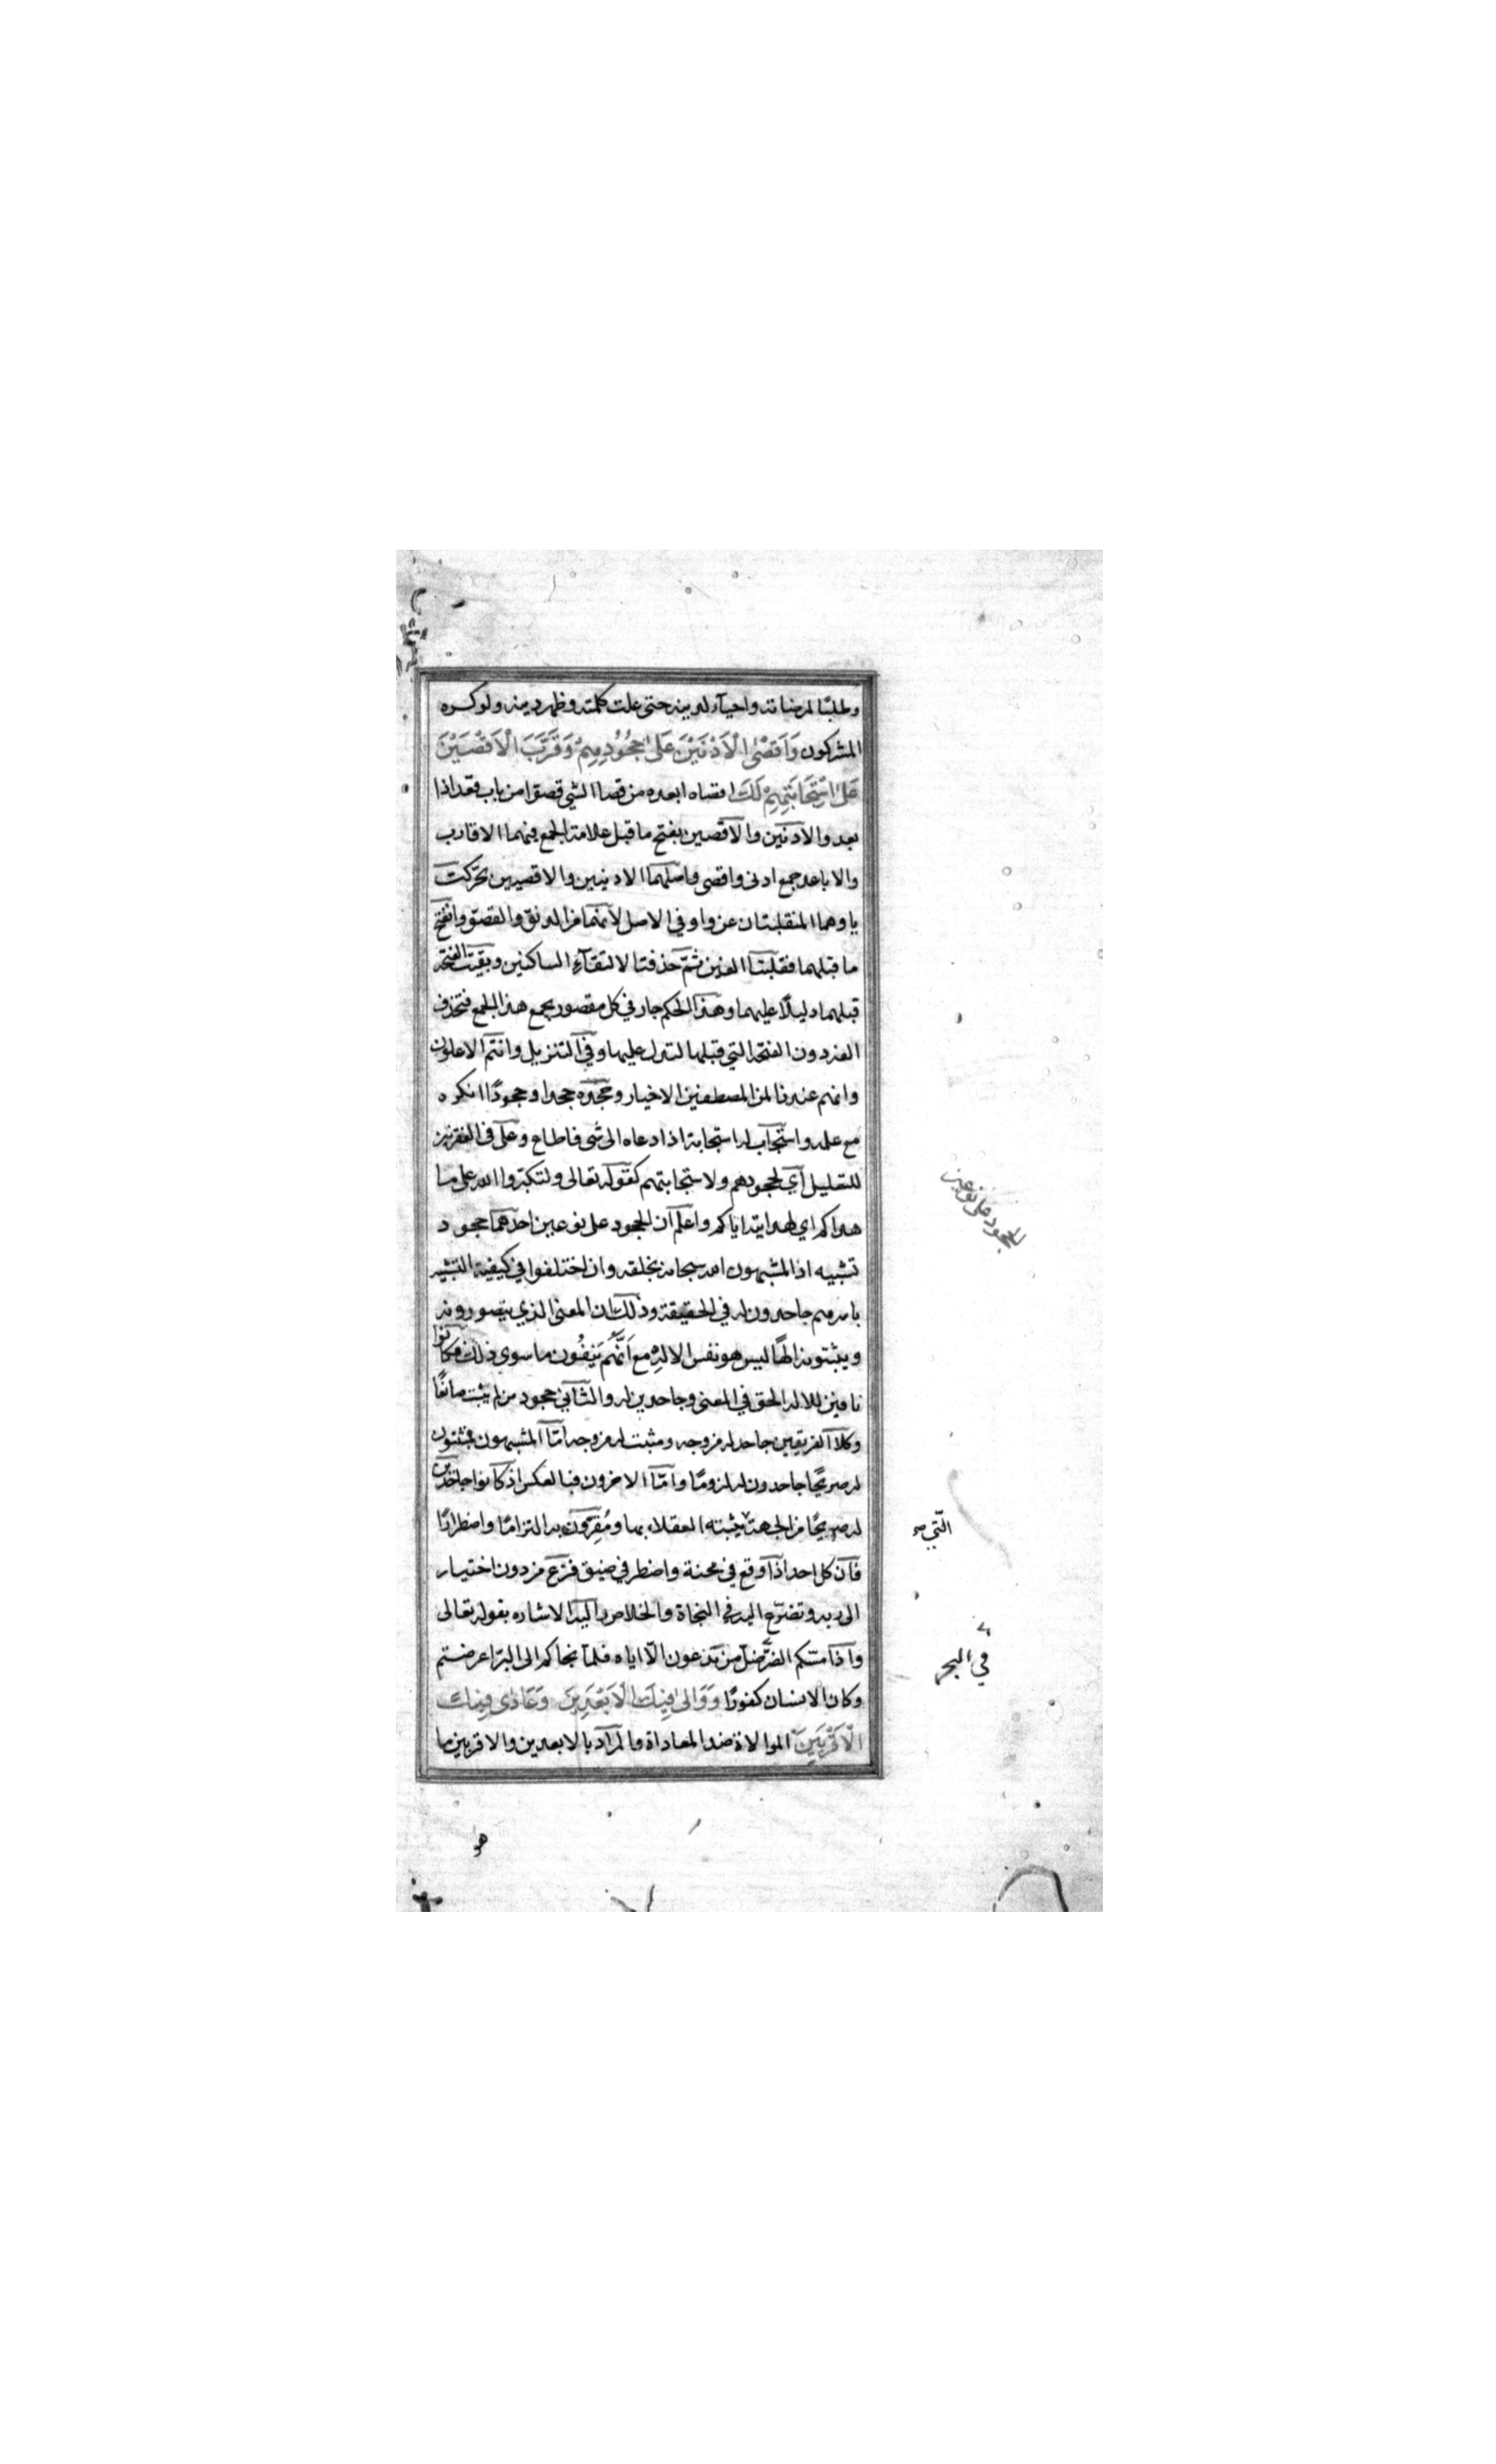 وطلبًا لمرضاته واحياء لدينه حتى علت كلمته وظهر دينه ولو كره
المشركون وَاَقصَى الْاَدْنَيْنَ عَلىٰ جُحُودِهِمْ وَقَرَّبَ الْاَقْصَيْنَ
عَلَى اسْتِجَابَتِهِمْ لَكَ اقصاه ابعده من قصا الشي قصوا من باب قعد اذا
بعد والادنَين والاقصين بفتح ما قبل علامة الجمع فيهما الاقارب
والاباعد جمع ادنى واقصى واصلهما الادنيين والاقصيين تحركت
ياوهما المنقلبتان عن واو في الاصل لانهما من الدنو والقصو وانفتح
ما قبلهما فقلبتا الفين ثم حذفتا لالتقاء الساكنين وبقيت الفتحة
قبلهما دليلًا عليهما وهذا الحكم جار في كل مقصور يجمع هذا الجمع فتحذف
الفه دون الفتحة التي قبلها لتدل عليها وفي التنزيل وانتم الاعلون
وانهم عندنا لمن المصطفين الاخيار وجحده جحدا وجحودًا انكره
مع علمه واستجاب له استجابة اذا دعاه الى شي فاطاع وعلى في الفقرتين
للتعليل اي لجحودهم ولاستجابتهم كقوله تعالى ولتكبروا الله على ما
هداكم اي لهدايته اياكم واعلم ان الجحود على نوعين احدهما جحود
تشبيه اذ المشبهون الله سبحانه بخلقه وان اختلفوا في كيفية التشبيه
باسرهم جاحدون له في الحقيقة وذلك ان المعنى الذي يتصورونه
ويثبتونه الهًا ليس هو نفس الاله مع اَنَّهُم يَنفُون ما سوى ذلك فكانوا
نافين للاله الحق في المعنى وجاحدين له والثاني جحود من لم يثبت صانعًا
وكلا الفريقين جاحد له من وجه ومثبت له من وجه امّا المشبهون فمثبتون
له صريحًا جاحدون له لزومًا وامّا الاخرون فبالعكس اذ كانوا جاحدين
له صريحًا من الجهة يثبته العقلاء بها ومُقِرّون به التزامًا واضطرارًا
فان كل احد اذا وقع في محنة واضطر في ضيق فزع من دون اختيار
الى ربه وتضرّع اليه في النجاة والخلاص واليه الاشاره بقوله تعالى
واذا مسّكم الضرّ ضل من تدعون الّا اياه فلما نجاكم الى البرّ اعرضتم
وكان الانسان كفورًا وَوَالىٰ فِيكَ الْاَبْعَدِينَ وَعَادىٰ فِيكَ
الْاَقْرَبِينَ الموالاة ضد المعاداة والمراد بالابعدين والاقربين ما
الجحود على نوعين
التي صح
في البحر